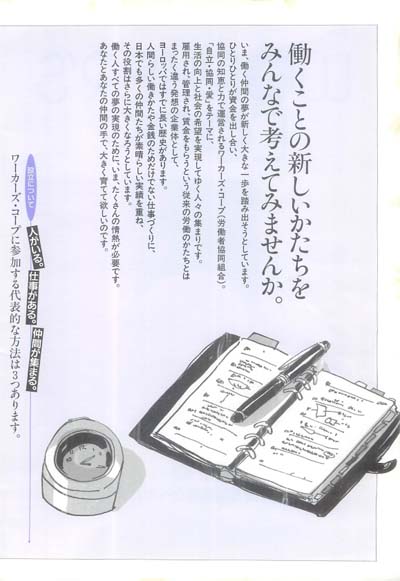 働くことの新しいかたちを
みんなで考えてみませんか。
いま、働く仲間の夢が新しく大きな一歩を踏み出そうとしています。
ひとりひとりが資金を出し合い、
協同の知恵と力で運営されるワーカーズ・コープ(労働者協同組合)。
「自立・協同・愛」をテーマに、
生活の向上と社会の希望を実現してゆく人々の集まりです。
雇用され、管理され、賃金をもらうという従来の労働のかたちとは
まったく違う発想の企業体として、
ヨーロッパではすでに長い歴史があります。
人間らしい働きかたや金銭のためだけでない仕事づくりに、
日本でも多くの仲間たちが素晴らしい実績を重ね、
その役割はさらに大きくなろうとしています。
働く人すべての夢の実現のために、いま、たくさんの情熱が必要です。
あなたとあなたの仲間の手で、大きく育てて欲しいのです。
設立について
人がいる。仕事がある。仲間が集まる。
ワーカーズ・コープに参加する代表的な方法は3つあります。